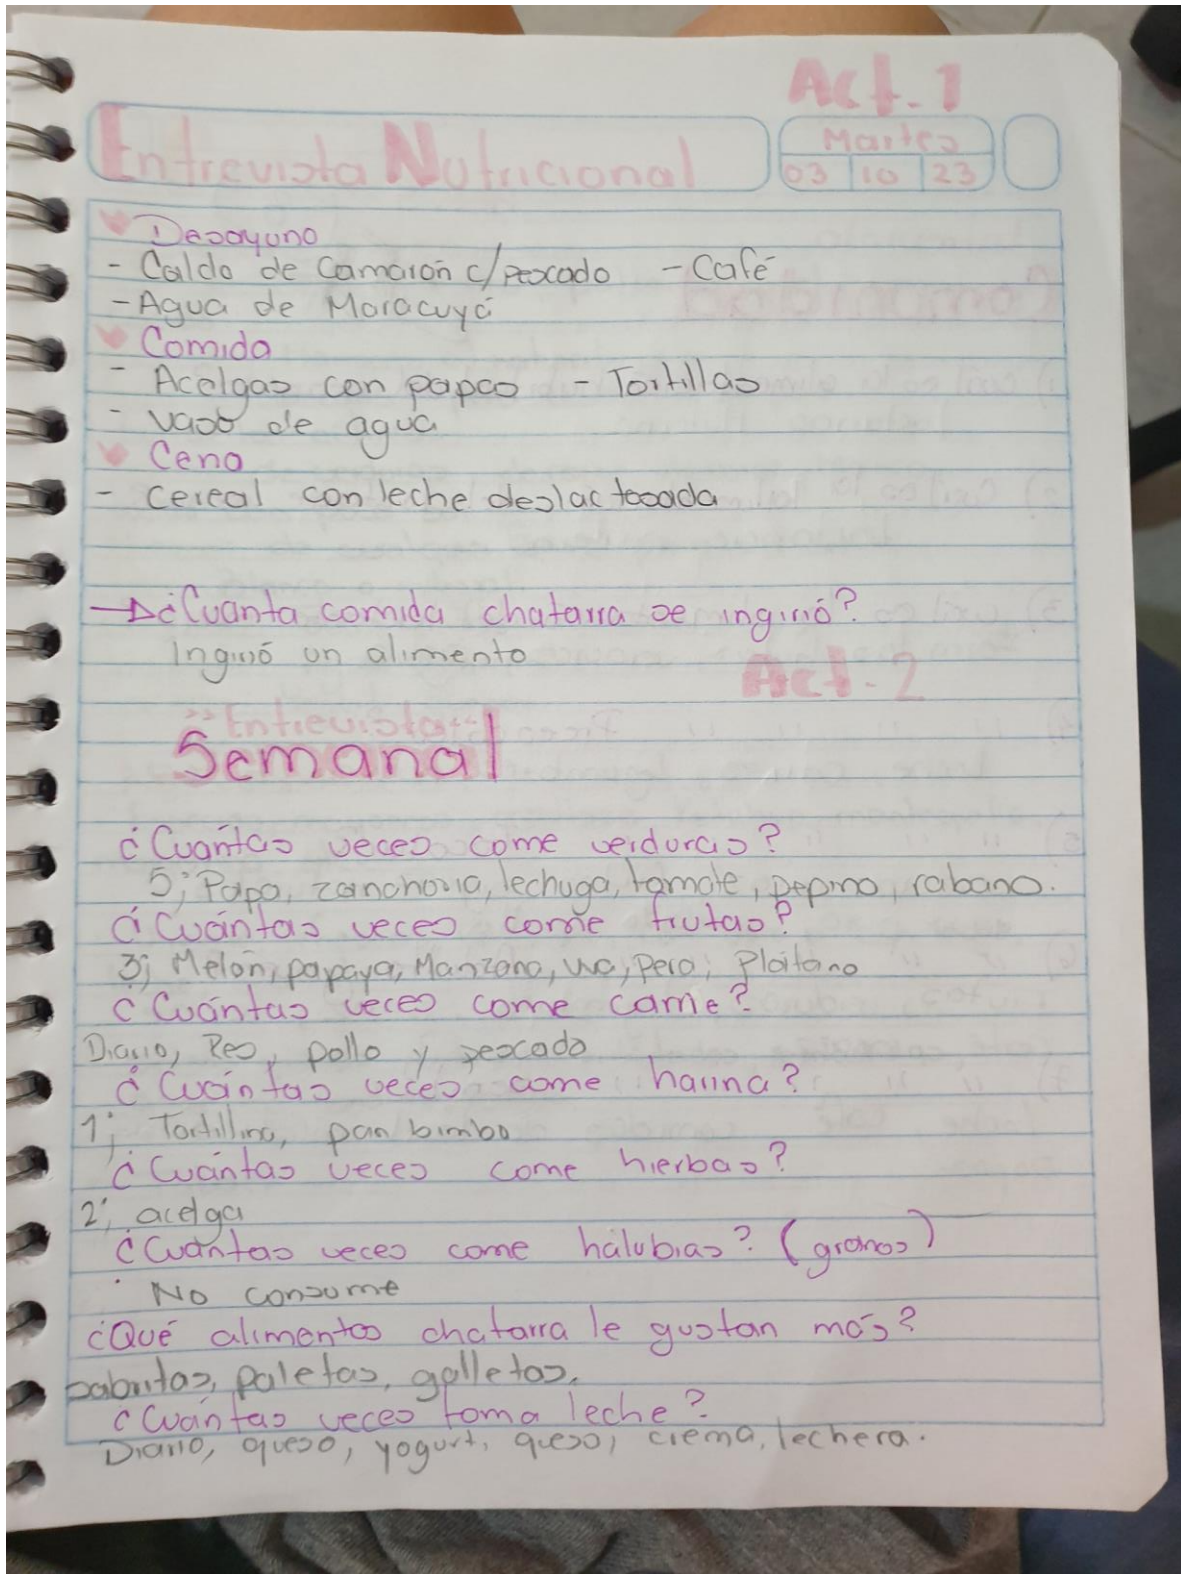 Act. 1
Entrevista Nutricional
Martes
03 10 23
Desayuno
- Caldo de Camarón c/pescado - Café
- Agua de Maracuyá
Comida
- Acelgas con papas - Tortillas
- vaso de agua
Cena
- Cereal con leche deslactosada
¿Cuanta comida chatarra se ingirió?
Ingirió un alimento
Act. 2
Entrevista
Semanal
¿Cuántas veces come verduras?
5; Papa, zanahoria, lechuga, tomate, pepino, rabano.
¿Cuántas veces come frutas?
3; Melón, papaya, Manzana, uva, pera, Plátano
¿Cuántas veces come carne?
Diario, Res, pollo y pescado
¿Cuántas veces come harina?
1; Tortillina, pan bimbo
¿Cuántas veces come hierbas?
2; acelga
¿Cuántas veces come halubias? (granos)
No consume
¿Qué alimentos chatarra le gustan más?
sabritas, paletas, galletas.
¿Cuántas veces toma leche?
Diario, queso, yogurt, queso, crema, lechera.